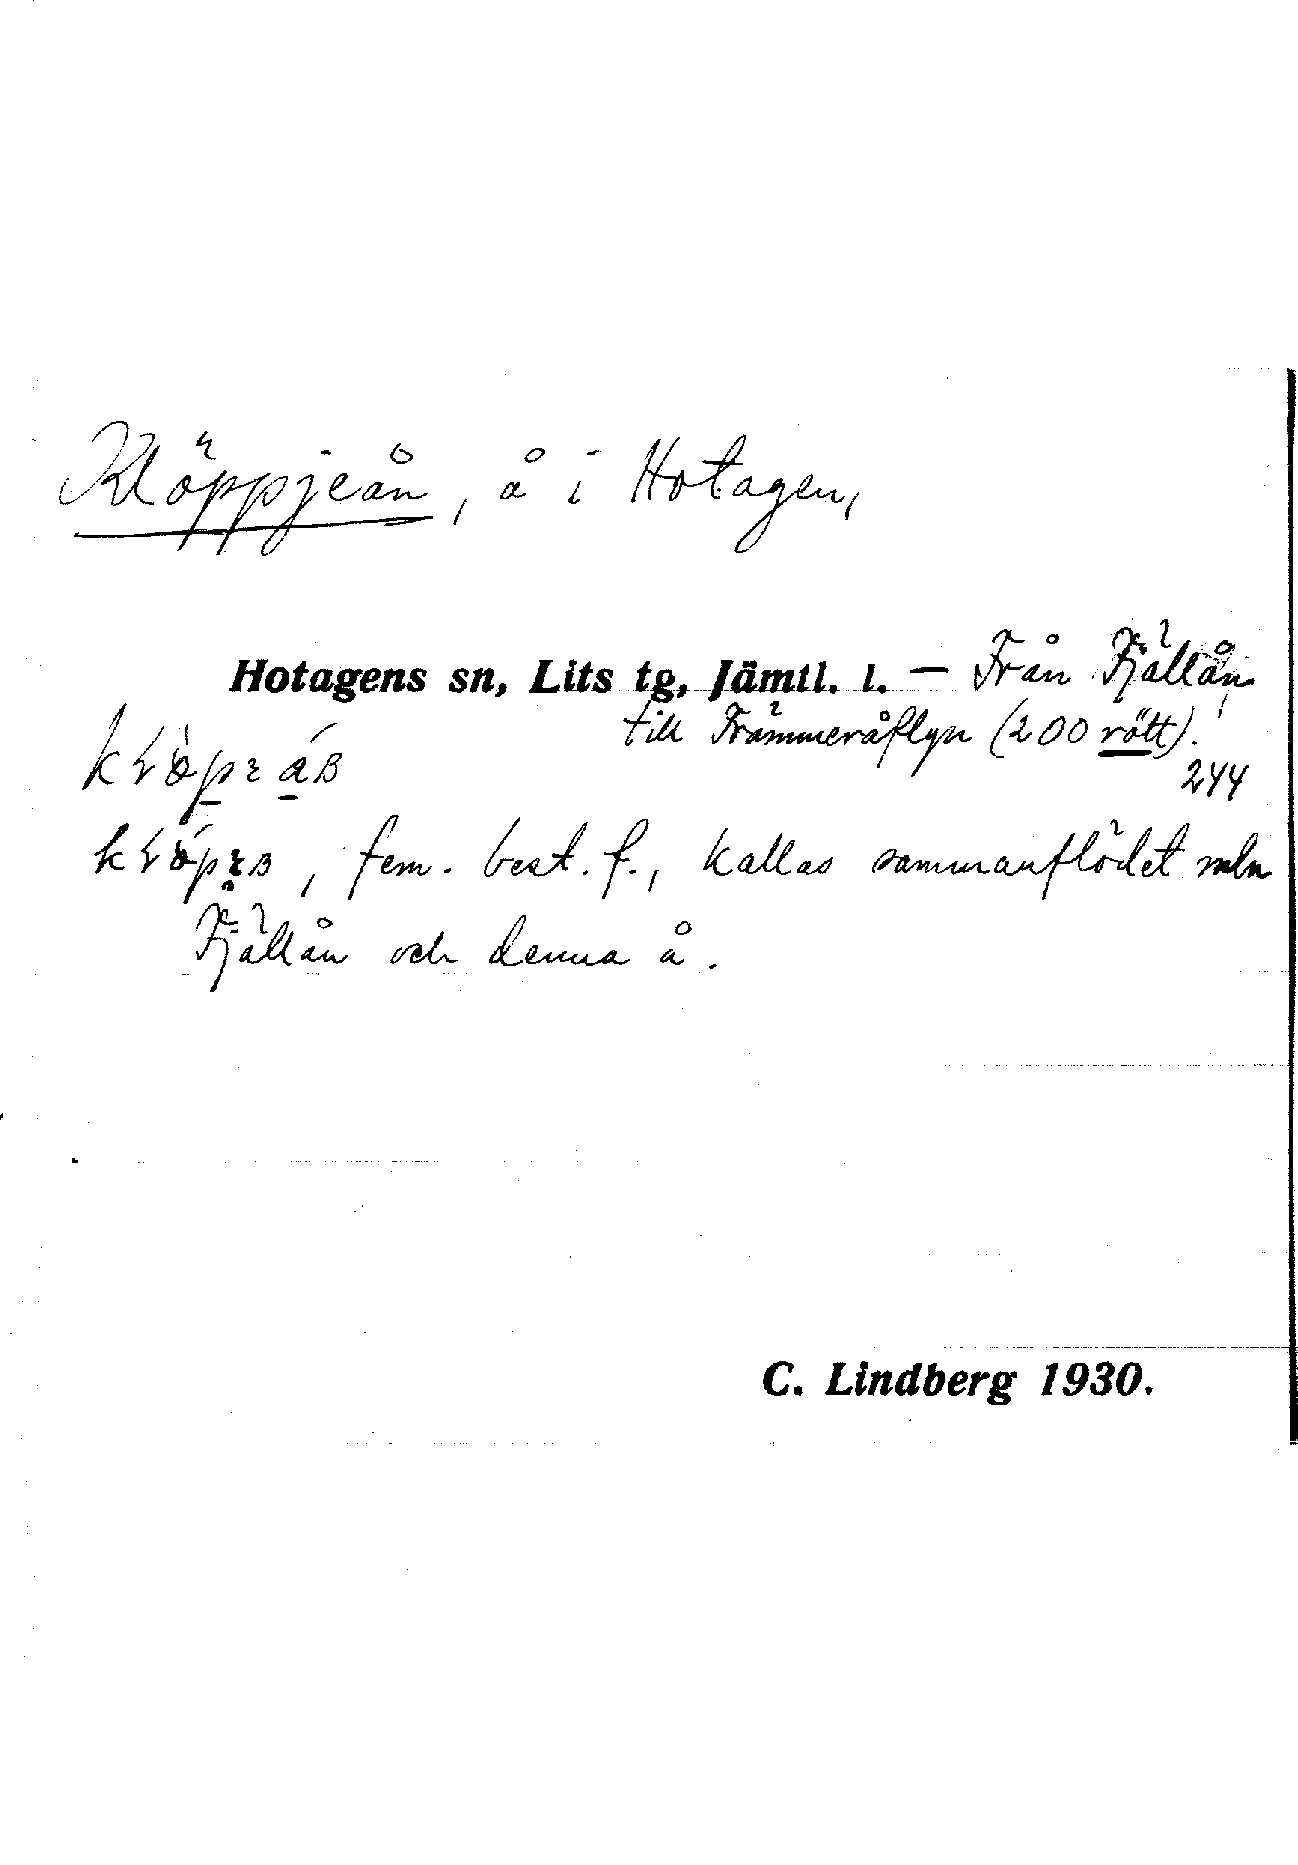 Klöppjeån, å i Hotagen,
Hotagens sn, Lits tg, Jämtl. l. — Från Fjällån,
till Främmeråflyn (200 rött).
244
, fem. best. f., kallas sammanflödet mln
Fjällån och denna å.
C. Lindberg 1930.